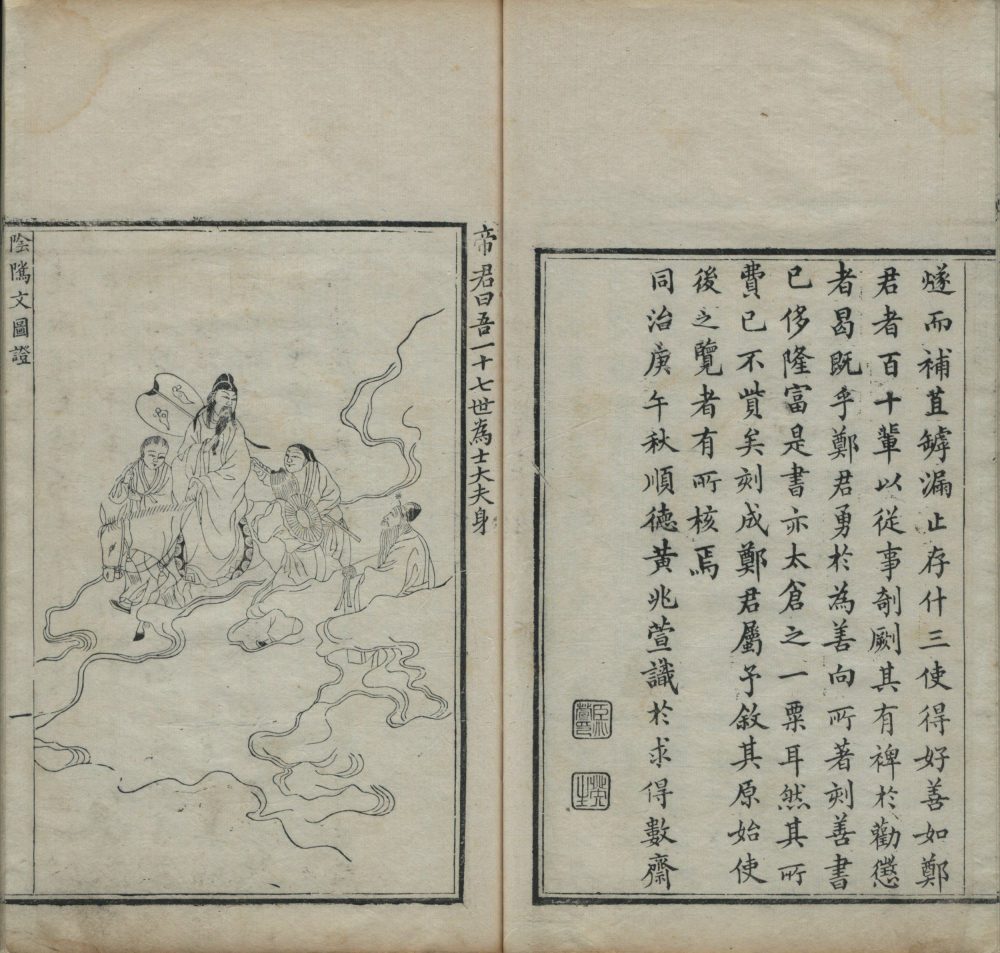 燧而補苴罅漏止存什三使得好善如鄭
君者百十輩以從事剞劂其有裨於勸懲
者曷既乎鄭君勇於為善向所著刻善書
已侈隆富是書亦太倉之一粟耳然其所
費已不貲矣刻成鄭君屬予敘其原始使
後之覽者有所核焉
同治庚午秋順德黃兆萱識於求得數齋
帝君曰吾一十七世為士大夫身
陰騭文圖證
一